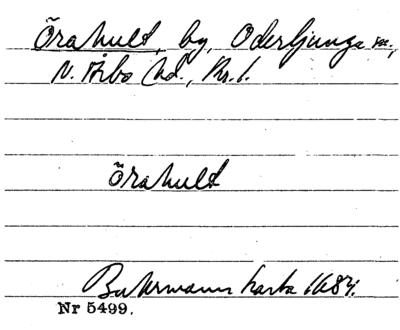 Örahult, by, Oderljunga sn.,
N. Åsbo hd., Kr. l.
Örahult
Buhrmanns karta 1684.
Nr 5499.